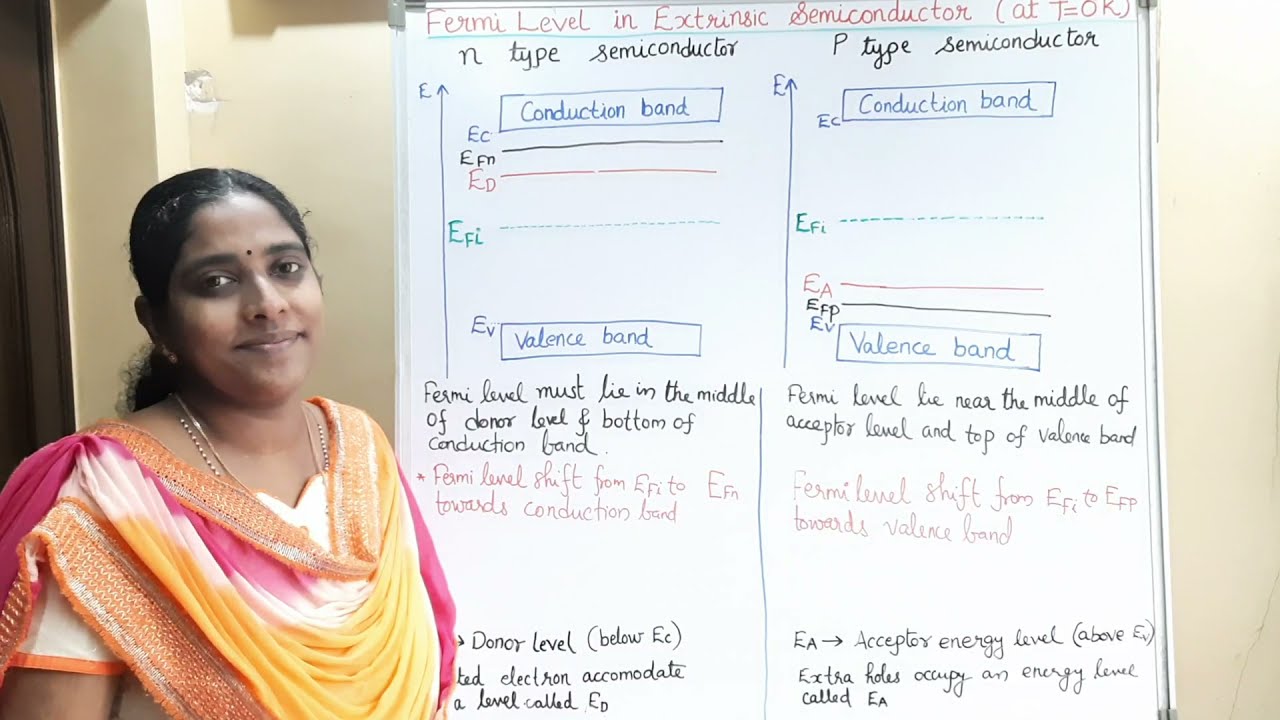 Fermi Level in Extrinsic Semiconductor (at T=0K)
n type semiconductor
E
Conduction band
Ec
EFn
ED
EFi
Ev
Valence band
Fermi level must lie in the middle
of donor level & bottom of
conduction band.
* Fermi level shift from EFi to EFn
towards conduction band
→ Donor level (below Ec)
ted electron accomodate
a level called ED
P type semiconductor
E
Conduction band
Ec
EFi
EA
EFp
Ev
Valence band
Fermi level lie near the middle of
acceptor level and top of valence band
Fermi level shift from EFi to EFP
towards valence band
EA → Acceptor energy level (above Ev)
Extra holes occupy an energy level
called EA